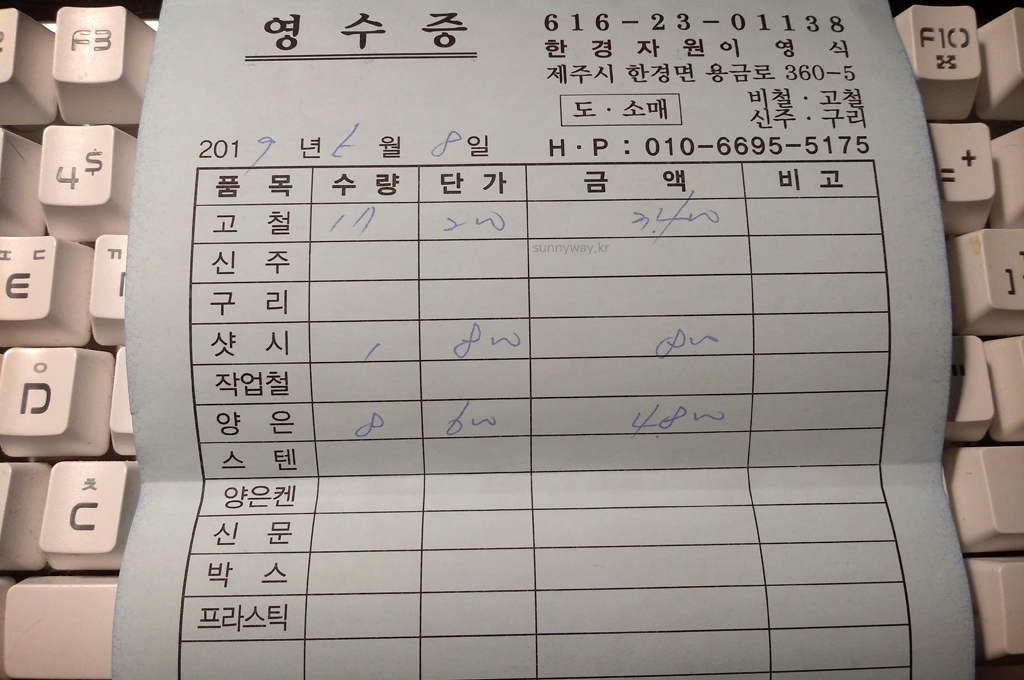 영 수 증
616-23-01138
한 경 자 원 이 영 식
제주시 한경면 용금로 360-5
도 · 소매
비철 · 고철
신주 · 구리
2019 년 월 8일
H · P : 010-6695-5175
품 목 수 량 단 가 금 액 비 고
고 철 17 200 3.400
sunnyway.kr
신 주
구 리
샷 시 1 800 800
작업철
양 은 8 600 4.800
스 텐
양은켄
신 문
박 스
프라스틱
F3
F10
4 $
= +
ㄷ
E
ㅇ
D
ㅊ
C